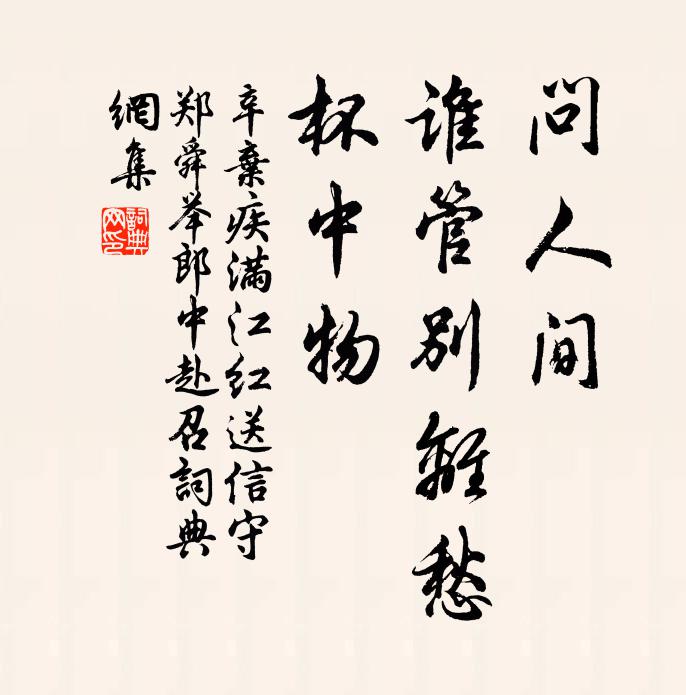 问人间
谁管别離愁
杯中物
辛棄疾满江红送信守
郑舜举郎中赴召詞典
網集
詞典网印